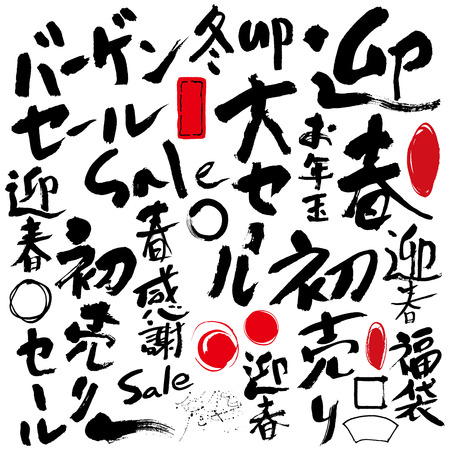 バーゲン
セール
冬
up
迎春
大セール
お年玉
Sale
迎春
春
感謝
初売り
初売り
迎春
福袋
セール
Sale
迎春